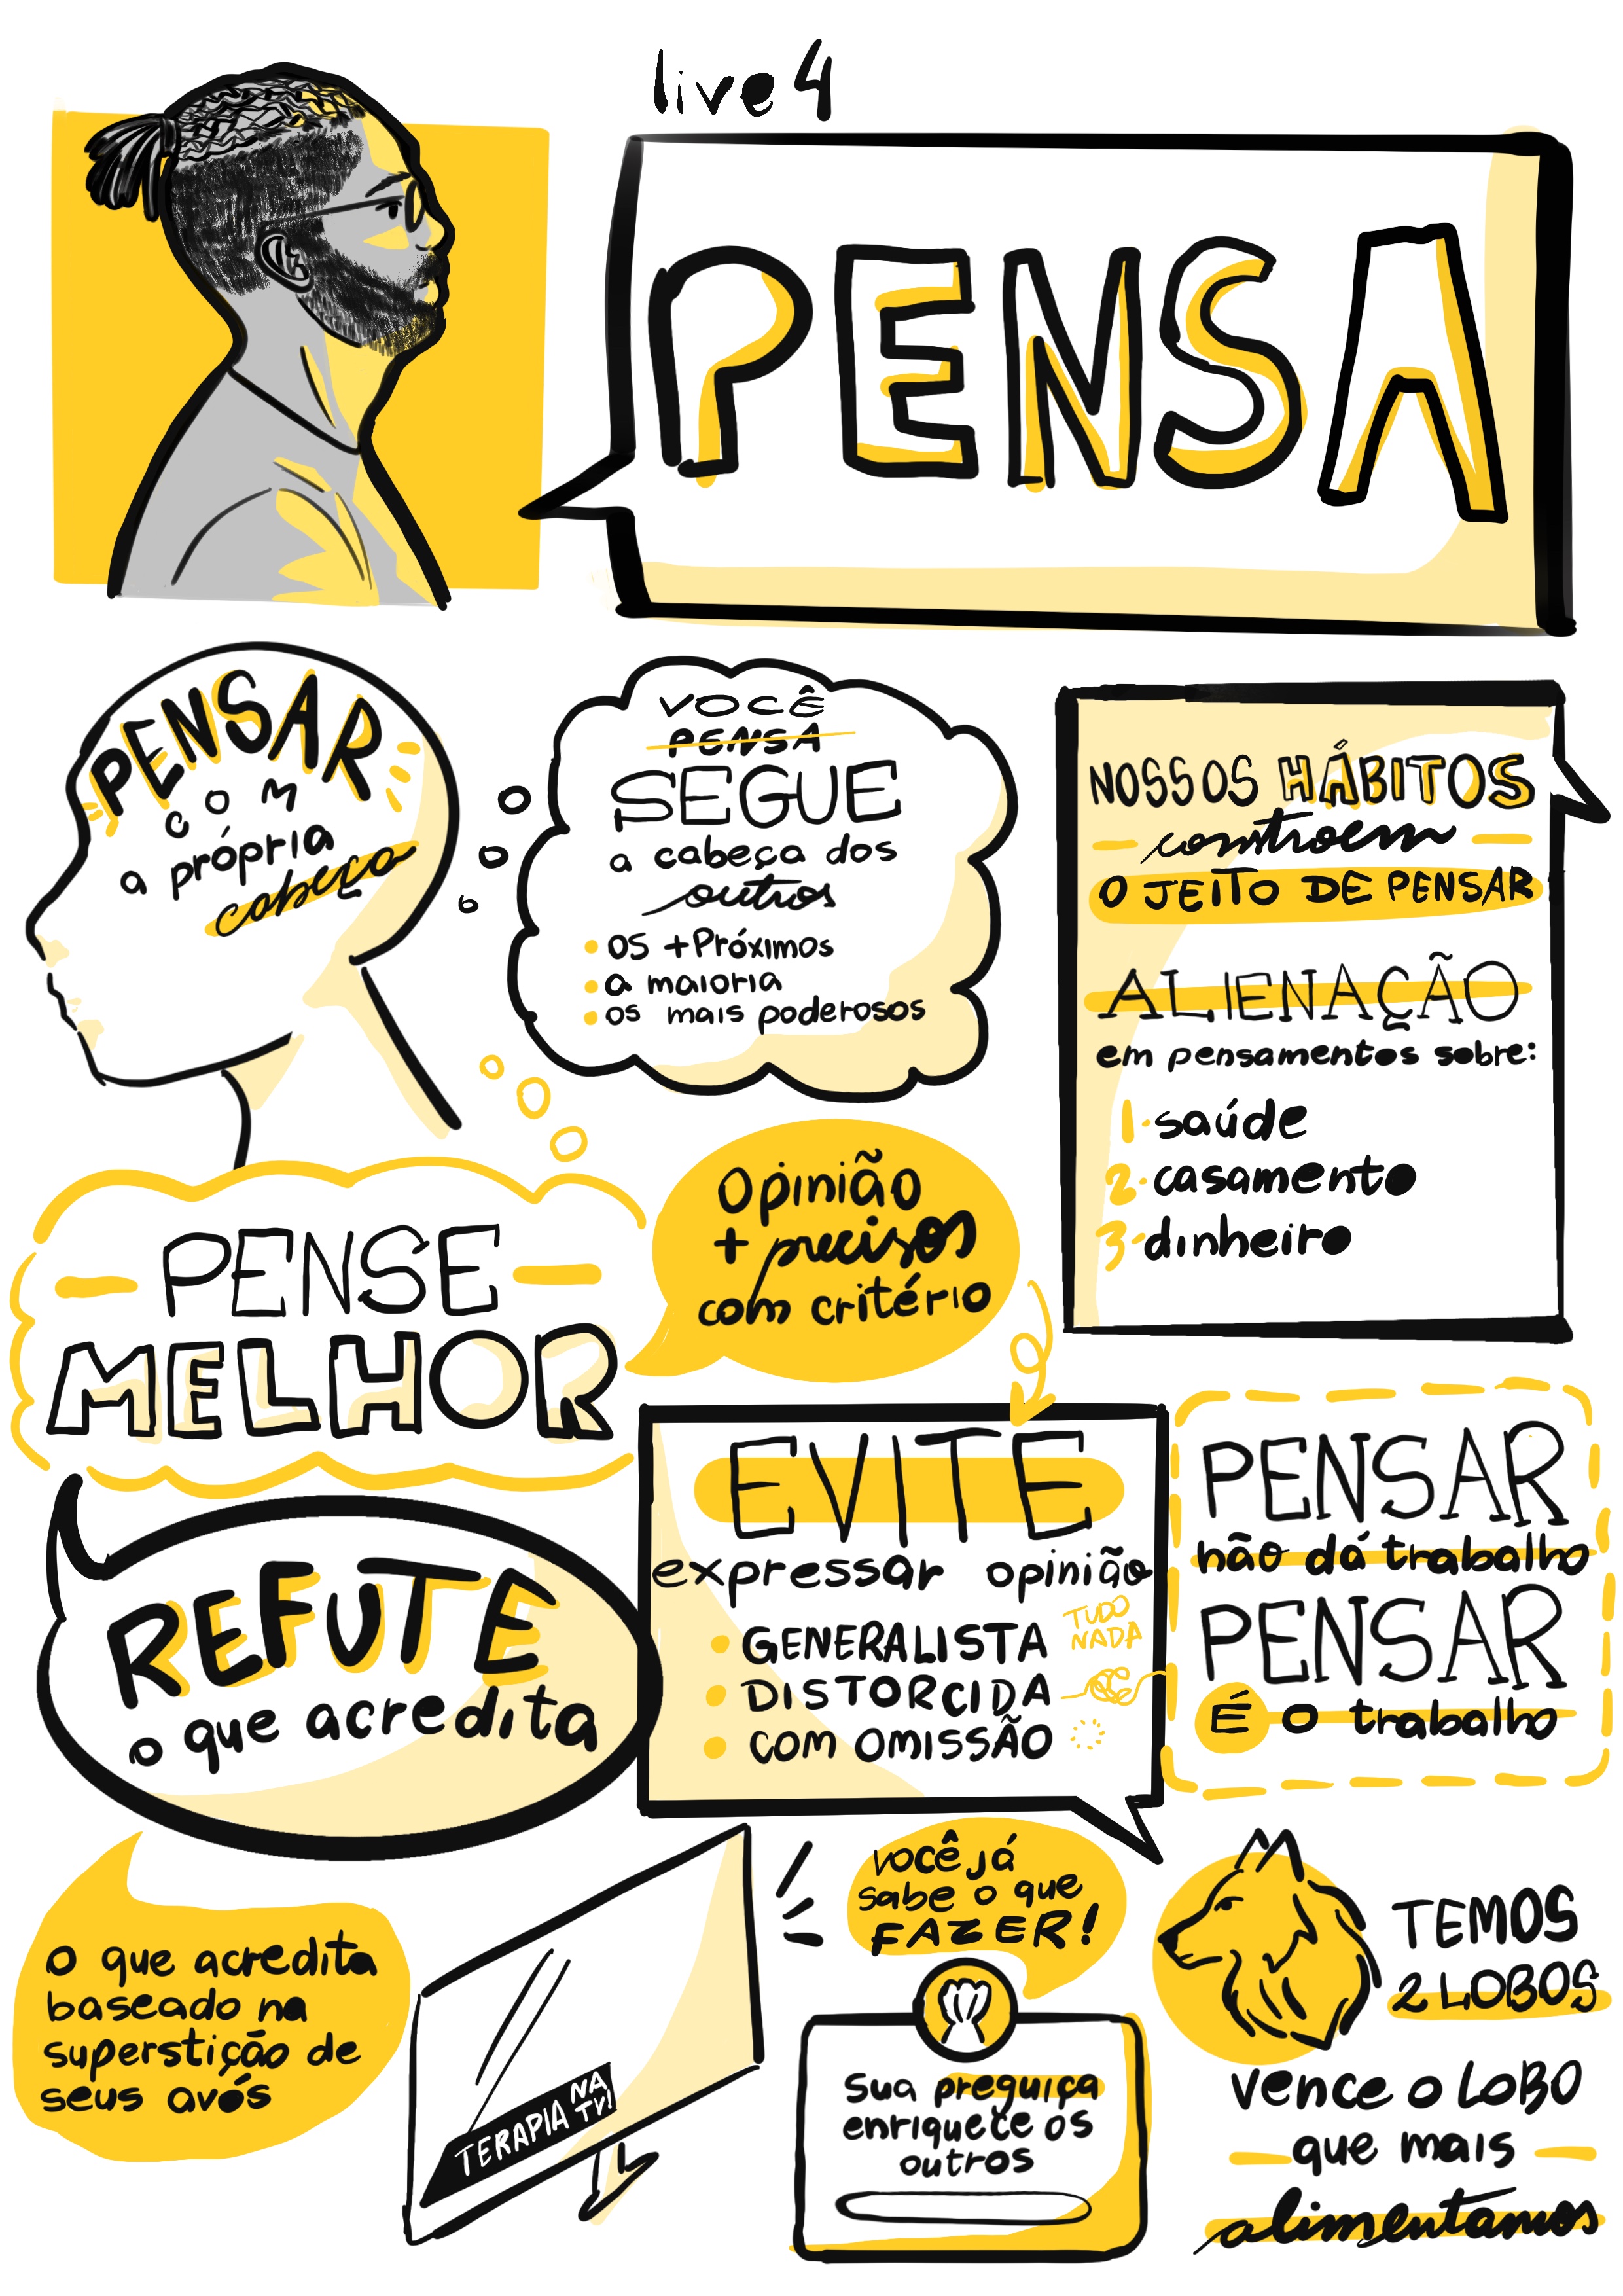 live 4
PENSA
PENSAR
COM
a própria
cabeça
VOCÊ
PENSA
SEGUE
a cabeça dos
outros
os + Próximos
a maioria
os mais poderosos
NOSSOS HÁBITOS
constroem
O JEITO DE PENSAR
ALIENAÇÃO
em pensamentos sobre:
1. saúde
2. casamento
3. dinheiro
PENSE
MELHOR
Opinião
+ precisos
com critério
REFUTE
o que acredita
EVITE
expressar opinião
GENERALISTA
TUDO
NADA
DISTORCIDA
COM OMISSÃO
PENSAR
não dá trabalho
PENSAR
É o trabalho
o que acredita
baseado na
superstição de
seus avós
TERAPIA NA
TV!
você já
sabe o que
FAZER!
Sua preguiça
enriquece os
outros
TEMOS
2 LOBOS
vence o LOBO
que mais
alimentamos